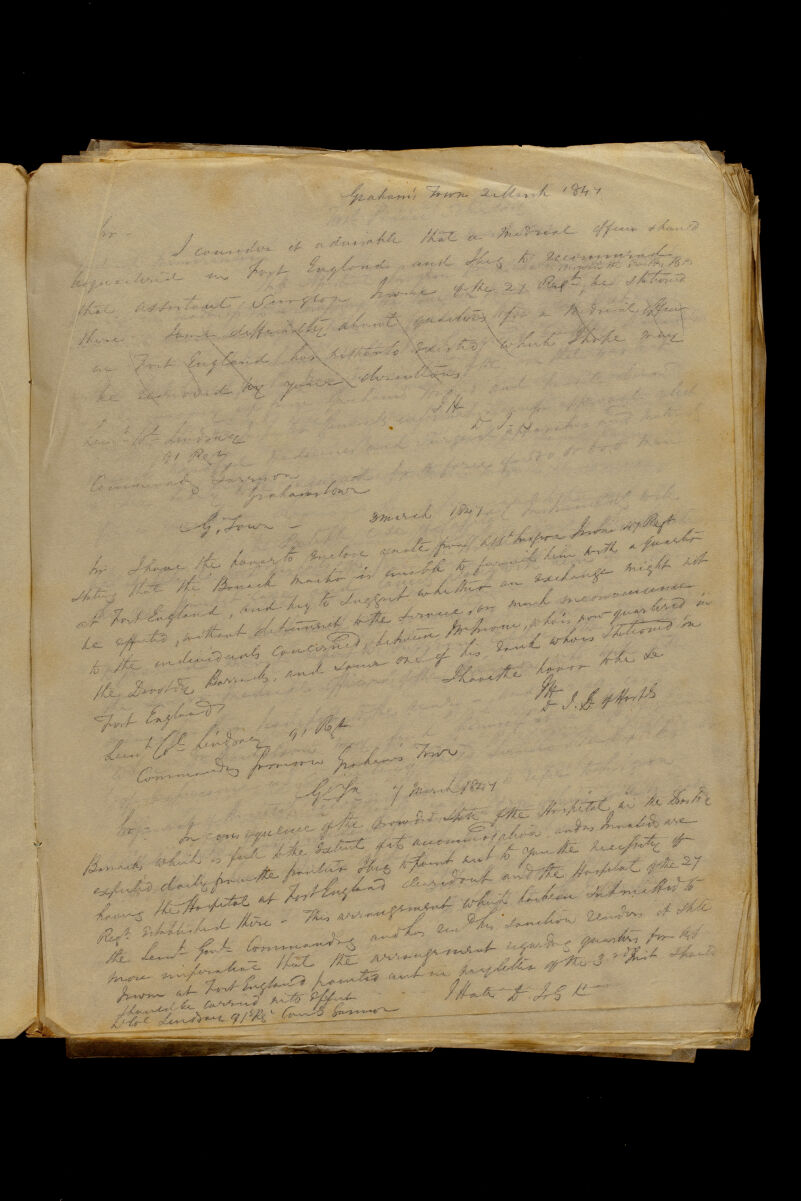 Graham's Town 2 March 1847
Sir -
I consider it advisable that a Medical officer should
be quartered in Fort England and I beg to recommend
that assistant Surgeon Irvine of the 27 Regt, be stationed
there Some difficulty about quarters for a Medical officer
in Fort England has hitherto existed which I hope may
be removed by your directions
JH
D I G H
Lieut Col Lindsay
91 Regt
Commanding Garrison
Grahamstown
G. Town - 3 March 1847
Sir I have the honor to enclose a note from Asst Surgeon Irvine 27 Regt
stating that the Barrack master is unable to furnish him with a quarter
at Fort England, and beg to suggest whether an exchange might not
be effected, without detriment to the Service, or much inconvenience
to the individuals concerned, between Mr Irvine, who is now quartered in
the Drostdy Barracks, and some one of his rank who is stationed in
Fort England I have the honor to be &c
JH
D I G of Hosptls
Lieut Col Lindsay 91 Regt
Commanding Garrison Graham's Town
G. Tn 7 March 1847
Sir, In consequence of the crowded state of the Hospital in the Drostdy
Barracks which is full to the extent of its accommodation and as Invalids are
expected daily from the frontier I beg to point out to you the necessity of
having the Hospital at Fort England cleared out and the Hospital of the 27
Regt established there - This arrangement which has been submitted to
the Lieut Govr Commanding and has met his sanction renders it still
more imperative that the arrangement regarding quarters for Asst
Irvine at Fort England pointed out in my letter of the 3rd Inst should
should be carried into effect
Lt Col Lindsay 91st Regt Comdg Garrison J Hall D I G H